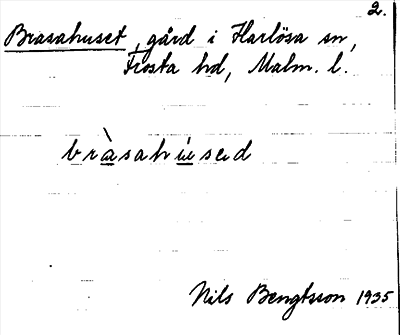 2.
Brasahuset, gård i Harlösa sn,
Frosta hd, Malm. l.
bràsahúsed
Nils Bengtsson 1935